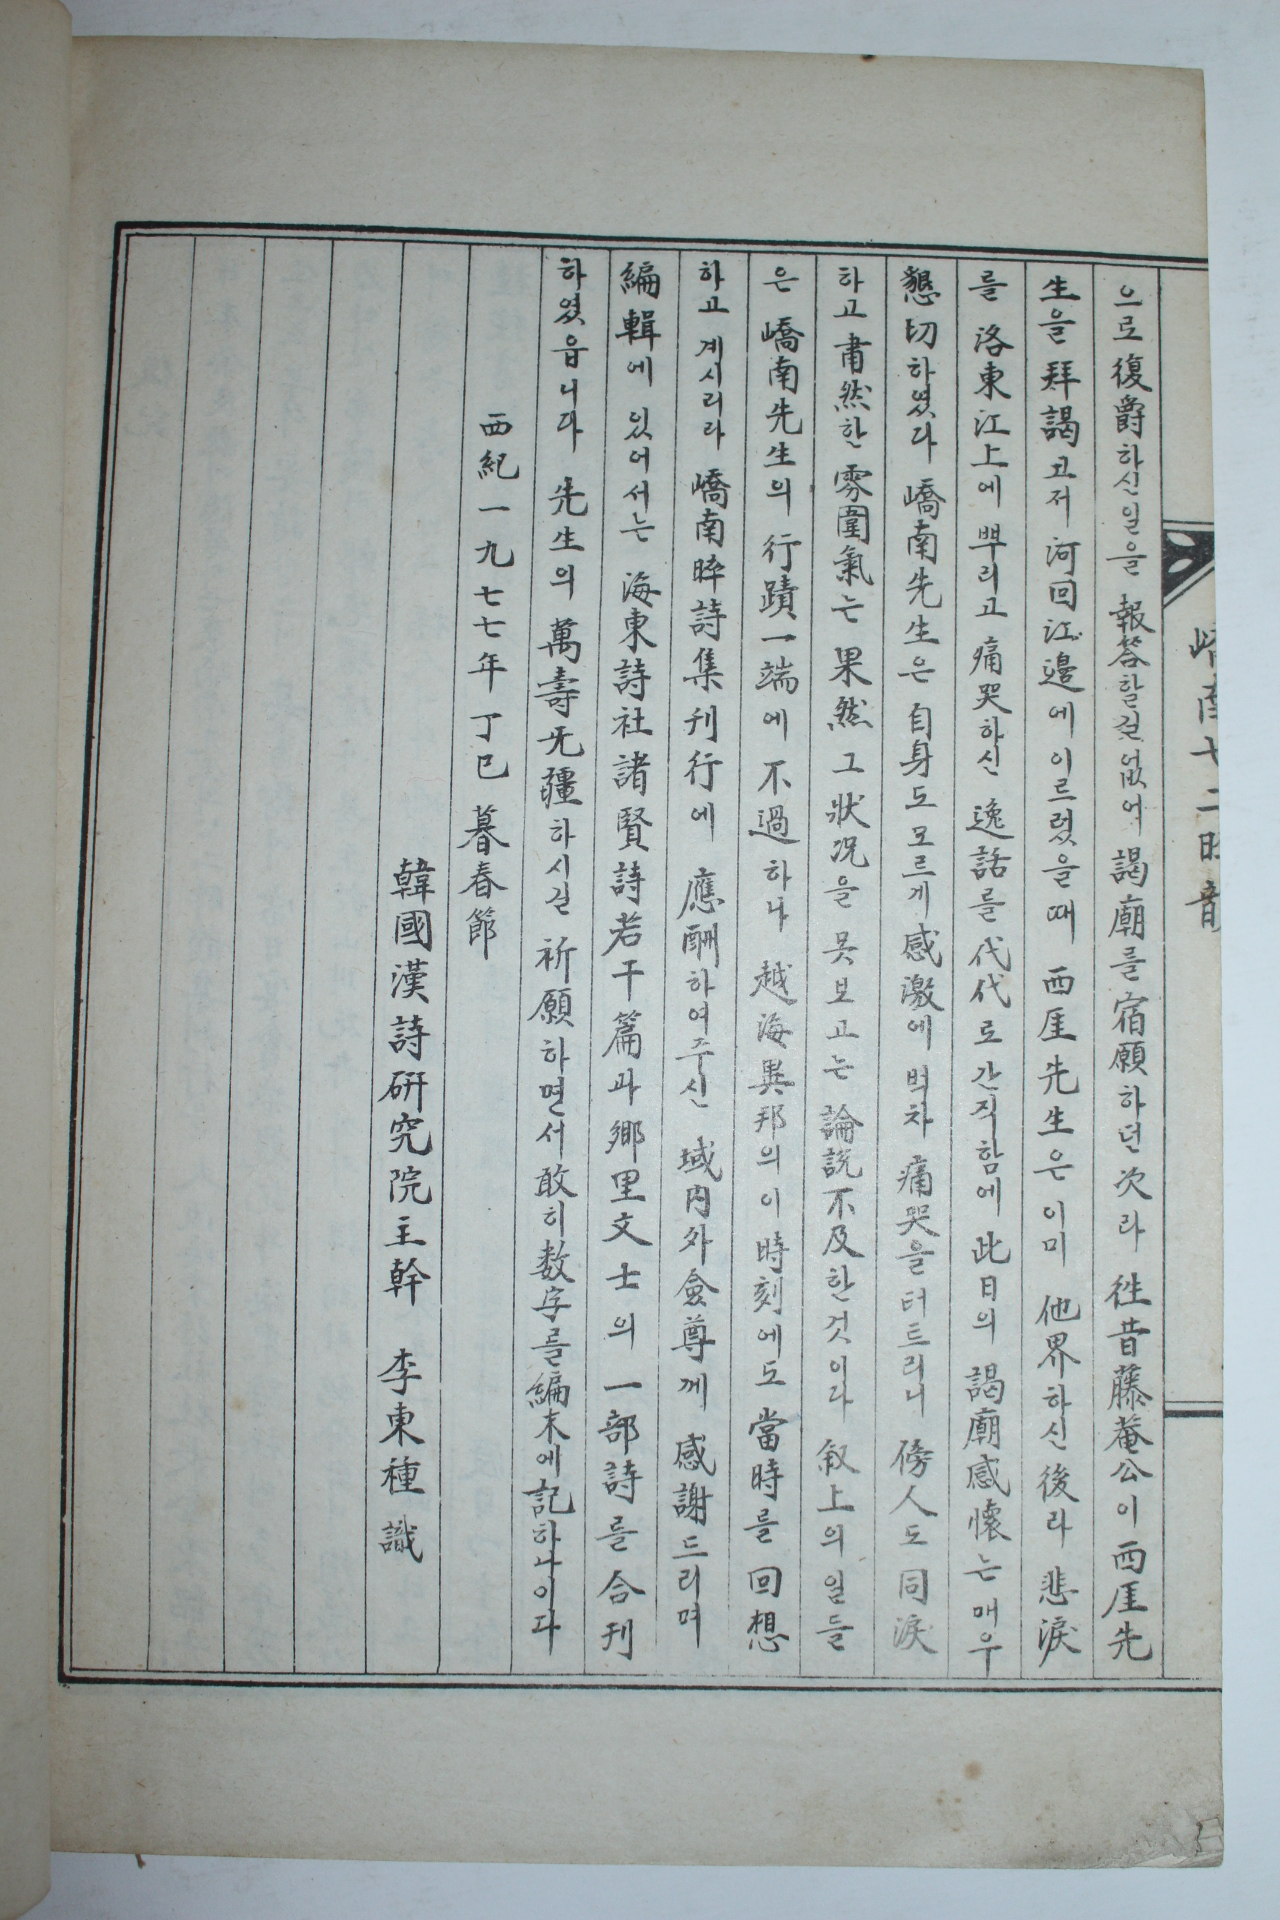 嶠南七二晬韻
으로 復爵하신일을 報答할길없어 謁廟를 宿願하던 次라 往昔藤菴公이 西厓先
生을 拜謁코저 河回江邊에 이르렀을때 西厓先生은 이미 他界하신 後라 悲淚
를 洛東江上에 뿌리고 痛哭하신 逸話를 代代로 간직함에 此日의 謁廟感懷는 매우
懇切하였다 嶠南先生은 自身도 모르게 感激에 벅차 痛哭을 터트리니 傍人도 同淚
하고 肅然한 雰圍氣는 果然 그 狀況을 못보고는 論說不及한것이라 叙上의 일들
은 嶠南先生의 行蹟一端에 不過하나 越海異邦의 이 時刻에도 當時를 回想
하고 계시리라 嶠南晬詩集刊行에 應酬하여주신 域內外僉尊께 感謝드리며
編輯에 있어서는 海東詩社諸賢詩若干篇과 鄕里文士의 一部詩를 合刊
하였읍니다 先生의 萬壽旡疆하시길 祈願하면서 敢히 数字를 編末에 記하나이다
西紀一九七七年 丁巳 暮春節
韓國漢詩硏究院主幹 李東種 識